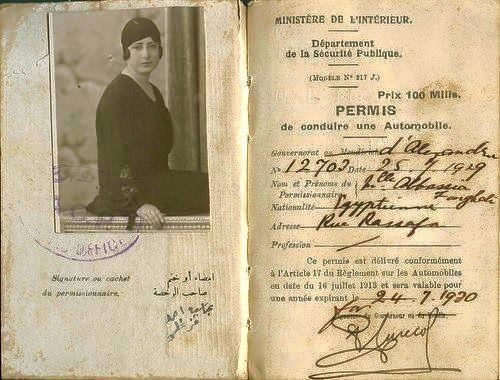 OFFICE
Signature ou cachet
du permissionnaire.
امضاء أو ختم
صاحب الرخصة
MINISTÈRE DE L'INTÉRIEUR.
Département
de la Sécurité Publique.
(MODÈLE Nº 217 J.)
Prix 100 Mills.
PERMIS
de conduire une Automobile.
Gouvernorat ou Moudirieh d'Alexandrie
Nº 12703 Date 25 7 1929
Nom et Prénoms du Mlle Abassia
Permissionnaire
Nationalité Egyptienne
Adresse Rue Rassafa
Profession
Ce permis est délivré conformément
à l'Article 17 du Règlement sur les Automobiles
en date du 16 juillet 1913 et sera valable pour
une année expirant le 24.7.1930
Gouverneur ou